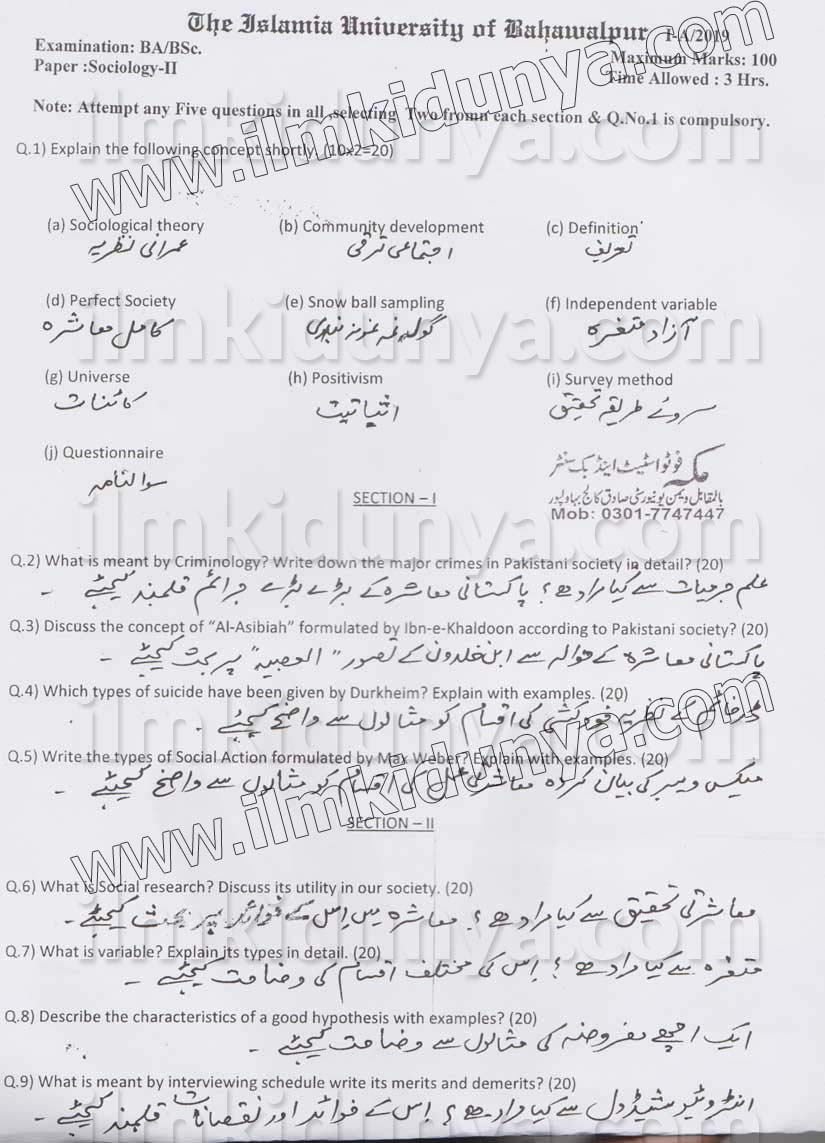 The Islamia University of Bahawalpur I-A/2019
Examination: BA/BSc. Maximum Marks: 100
Paper :Sociology-II Time Allowed : 3 Hrs.
Note: Attempt any Five questions in all ,selecting Two fromn each section & Q.No.1 is compulsory.
Q.1) Explain the following concept shortly. (10x2=20)
(a) Sociological theory (b) Community development (c) Definition
عمرانی نظریہ اجتماعی ترقی تعریف
(d) Perfect Society (e) Snow ball sampling (f) Independent variable
کامل معاشرہ گولہ نمہ نمونہ بندی آزاد متغیرہ
(g) Universe (h) Positivism (i) Survey method
کائنات اثباتیت سروے طریقہ تحقیق
(j) Questionnaire
سوالنامہ
مکہ فوٹو اسٹیٹ اینڈ بک سنٹر
بالمقابل ویمن یونیورسٹی صادق کالج بہاولپور
Mob: 0301-7747447
SECTION – I
Q.2) What is meant by Criminology? Write down the major crimes in Pakistani society in detail? (20)
علم جرمیات سے کیا مراد ہے؟ پاکستانی معاشرہ کے بڑے بڑے جرائم قلمبند کیجئے ۔
Q.3) Discuss the concept of “Al-Asibiah” formulated by Ibn-e-Khaldoon according to Pakistani society? (20)
پاکستانی معاشرہ کے حوالہ سے ابن خلدون کے تصور "العصبیہ" پر بحث کیجئے ۔
Q.4) Which types of suicide have been given by Durkheim? Explain with examples. (20)
کے نظریہ خودکشی کی اقسام کو مثالوں سے واضح کیجئے ۔
Q.5) Write the types of Social Action formulated by Max Weber? Explain with examples. (20)
میکس ویبر کی بیان کردہ معاشرتی عمل کی اقسام کو مثالوں سے واضح کیجئے ۔
SECTION – II
Q.6) What is Social research? Discuss its utility in our society. (20)
معاشرتی تحقیق سے کیا مراد ہے؟ معاشرہ میں اس کے فوائد پر بحث کیجئے ۔
Q.7) What is variable? Explain its types in detail. (20)
متغیرہ سے کیا مراد ہے؟ اس کی مختلف اقسام کی وضاحت کیجئے ۔
Q.8) Describe the characteristics of a good hypothesis with examples? (20)
ایک اچھے مفروضہ کی مثالوں سے وضاحت کیجئے ۔
Q.9) What is meant by interviewing schedule write its merits and demerits? (20)
انٹرویو شیڈول سے کیا مراد ہے؟ اس کے فوائد اور نقصانات قلمبند کیجئے ۔
www.ilmkidunya.com
www.ilmkidunya.com
ilmkidunya.com
ilmkidunya.com
ilmkidunya.com
ilmkidunya.com
ilmkidunya.com